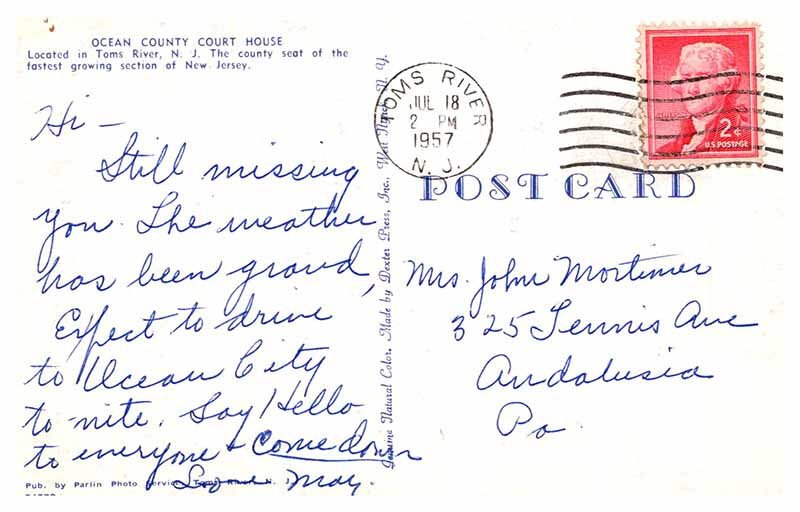 OCEAN COUNTY COURT HOUSE
Located in Toms River, N. J. The county seat of the
fastest growing section of New Jersey.
Hi –
Still missing
you. The weather
has been grand,
Expect to drive
to Ocean City
to-nite. Say Hello
to everyone & Come down
May.
Pub. by Parlin Photo Service, Toms River N. J.
Genuine Natural Color. Made by Dexter Press, Inc., West Nyack, N. Y.
TOMS RIVER
JUL 18
2 PM
1957
N. J.
2¢
U.S. POSTAGE
POST CARD
Mrs. John Mortimer
325 Tennis Ave
Andalusia
Pa.